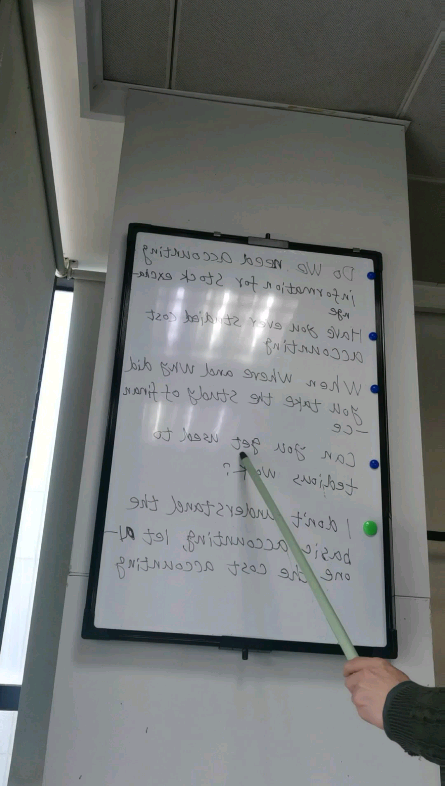 Do We need Accounting
information for Stock excha-
nge
Have you ever studied cost
accounting
When Where and Why did
you take the study of finan
-ce
Can you get used to
tedious work?
I don't understand the
basic accounting, let Al-
one the cost accounting